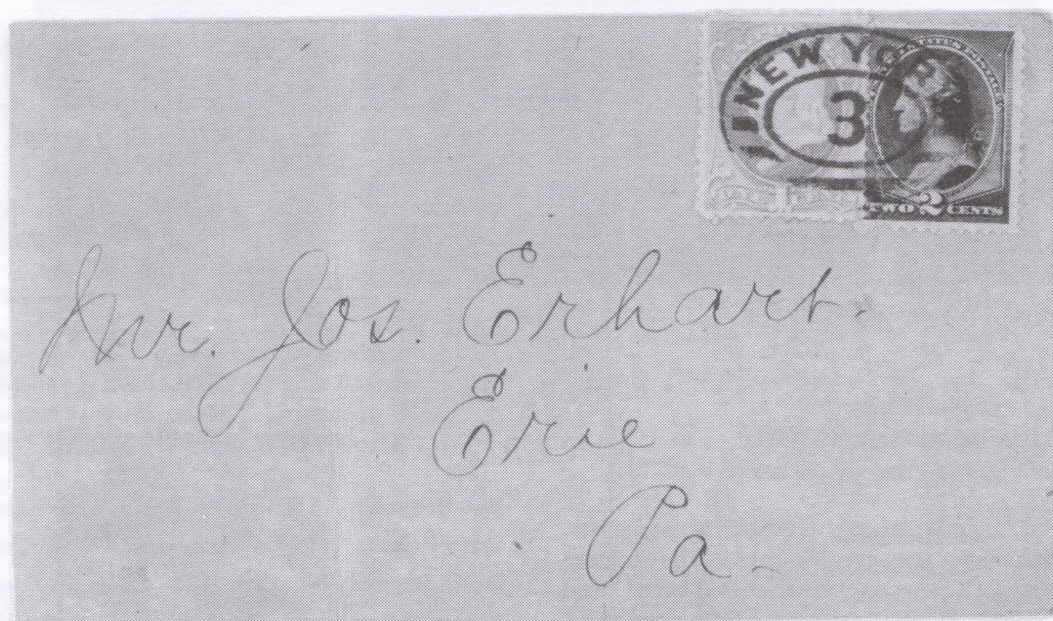 NEW YORK
3
TWO 2 CENTS
Mr. Jos. Erhart.
Erie
Pa-